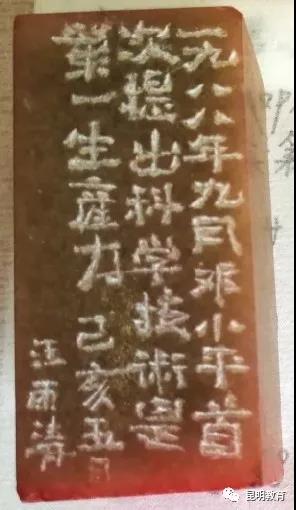 一九八八年九月邓小平首
次提出科学技術是
第一生産力 己亥五月
汪雨清
昆明教育